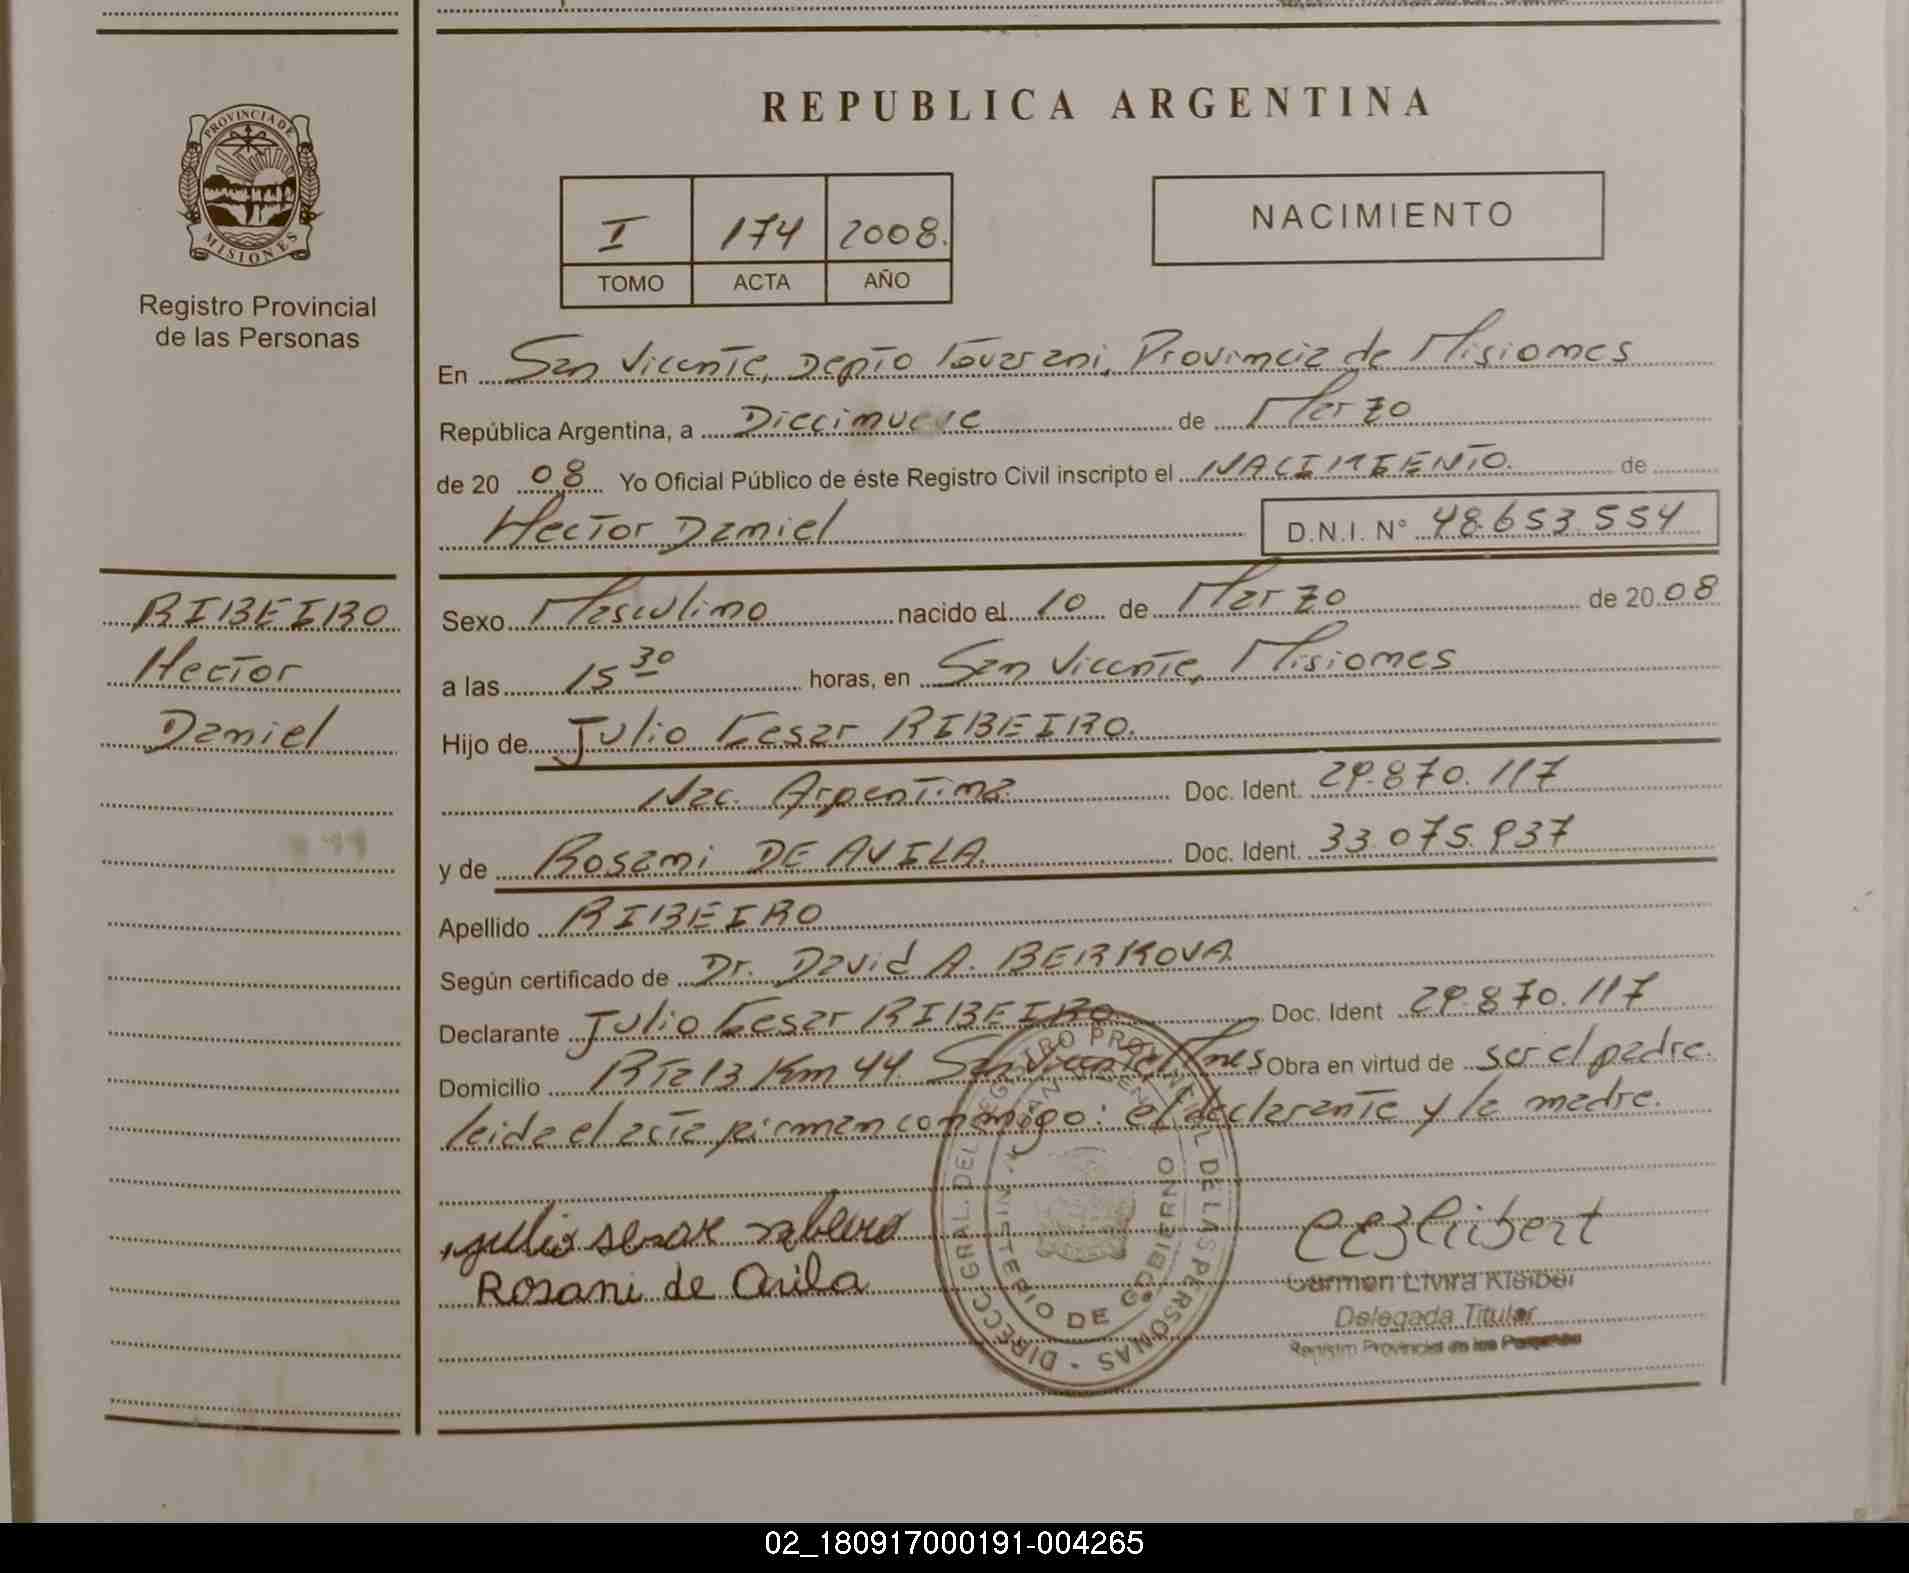 REPUBLICA ARGENTINA
PROVINCIA DE
MISIONES
Registro Provincial
de las Personas
I 174 2008.
TOMO ACTA AÑO
NACIMIENTO
En San Vicente, Depto Guarani, Provincia de Misiones
República Argentina, a Diecinueve de Marzo
de 2008 Yo Oficial Público de éste Registro Civil inscripto el NACIMIENTO de
Hector Daniel D.N.I. N° 48.653.554
RIBEIRO
Hector
Daniel
Sexo Masculino nacido el 10 de Marzo de 2008
a las 15 30 horas, en San Vicente, Misiones
Hijo de Julio Cesar RIBEIRO.
Nac. Argentina Doc. Ident. 29.870.117
y de Rosani DE AVILA Doc. Ident. 33.075.937
Apellido RIBEIRO
Según certificado de Dr. David A. BERKOVA
Declarante Julio Cesar RIBEIRO Doc. Ident 29.870.117
Domicilio Rta 13 Km 44 San Vicente Mnes Obra en virtud de ser el padre.
leida el acta firman conmigo: el declarante y la madre.
julio sesar
Rosani de Avila
DIRECC. GRAL. DEL REGISTRO PROVINCIAL DE LAS PERSONAS
MINISTERIO DE GOBIERNO
Carmen Elvira Kleibert
Delegada Titular
Registro Provincial de las Personas
02_180917000191-004265